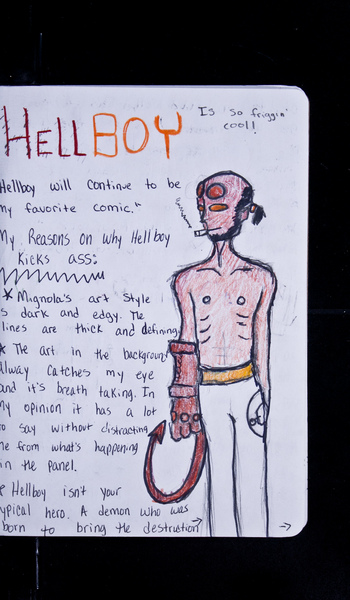 HELLBOY
Is so friggin'
cool!
Hellboy will continue to be
my favorite comic."
My Reasons on why Hellboy
Kicks ass:
* Mignola's art style
is dark and edgy. The
lines are thick and defining.
* The art in the background
alway catches my eye
and it's breath taking. In
my opinion it has a lot
to say without distracting
me from what's happening
in the panel.
Hellboy isn't your
typical hero. A demon who was
born to bring the destruction